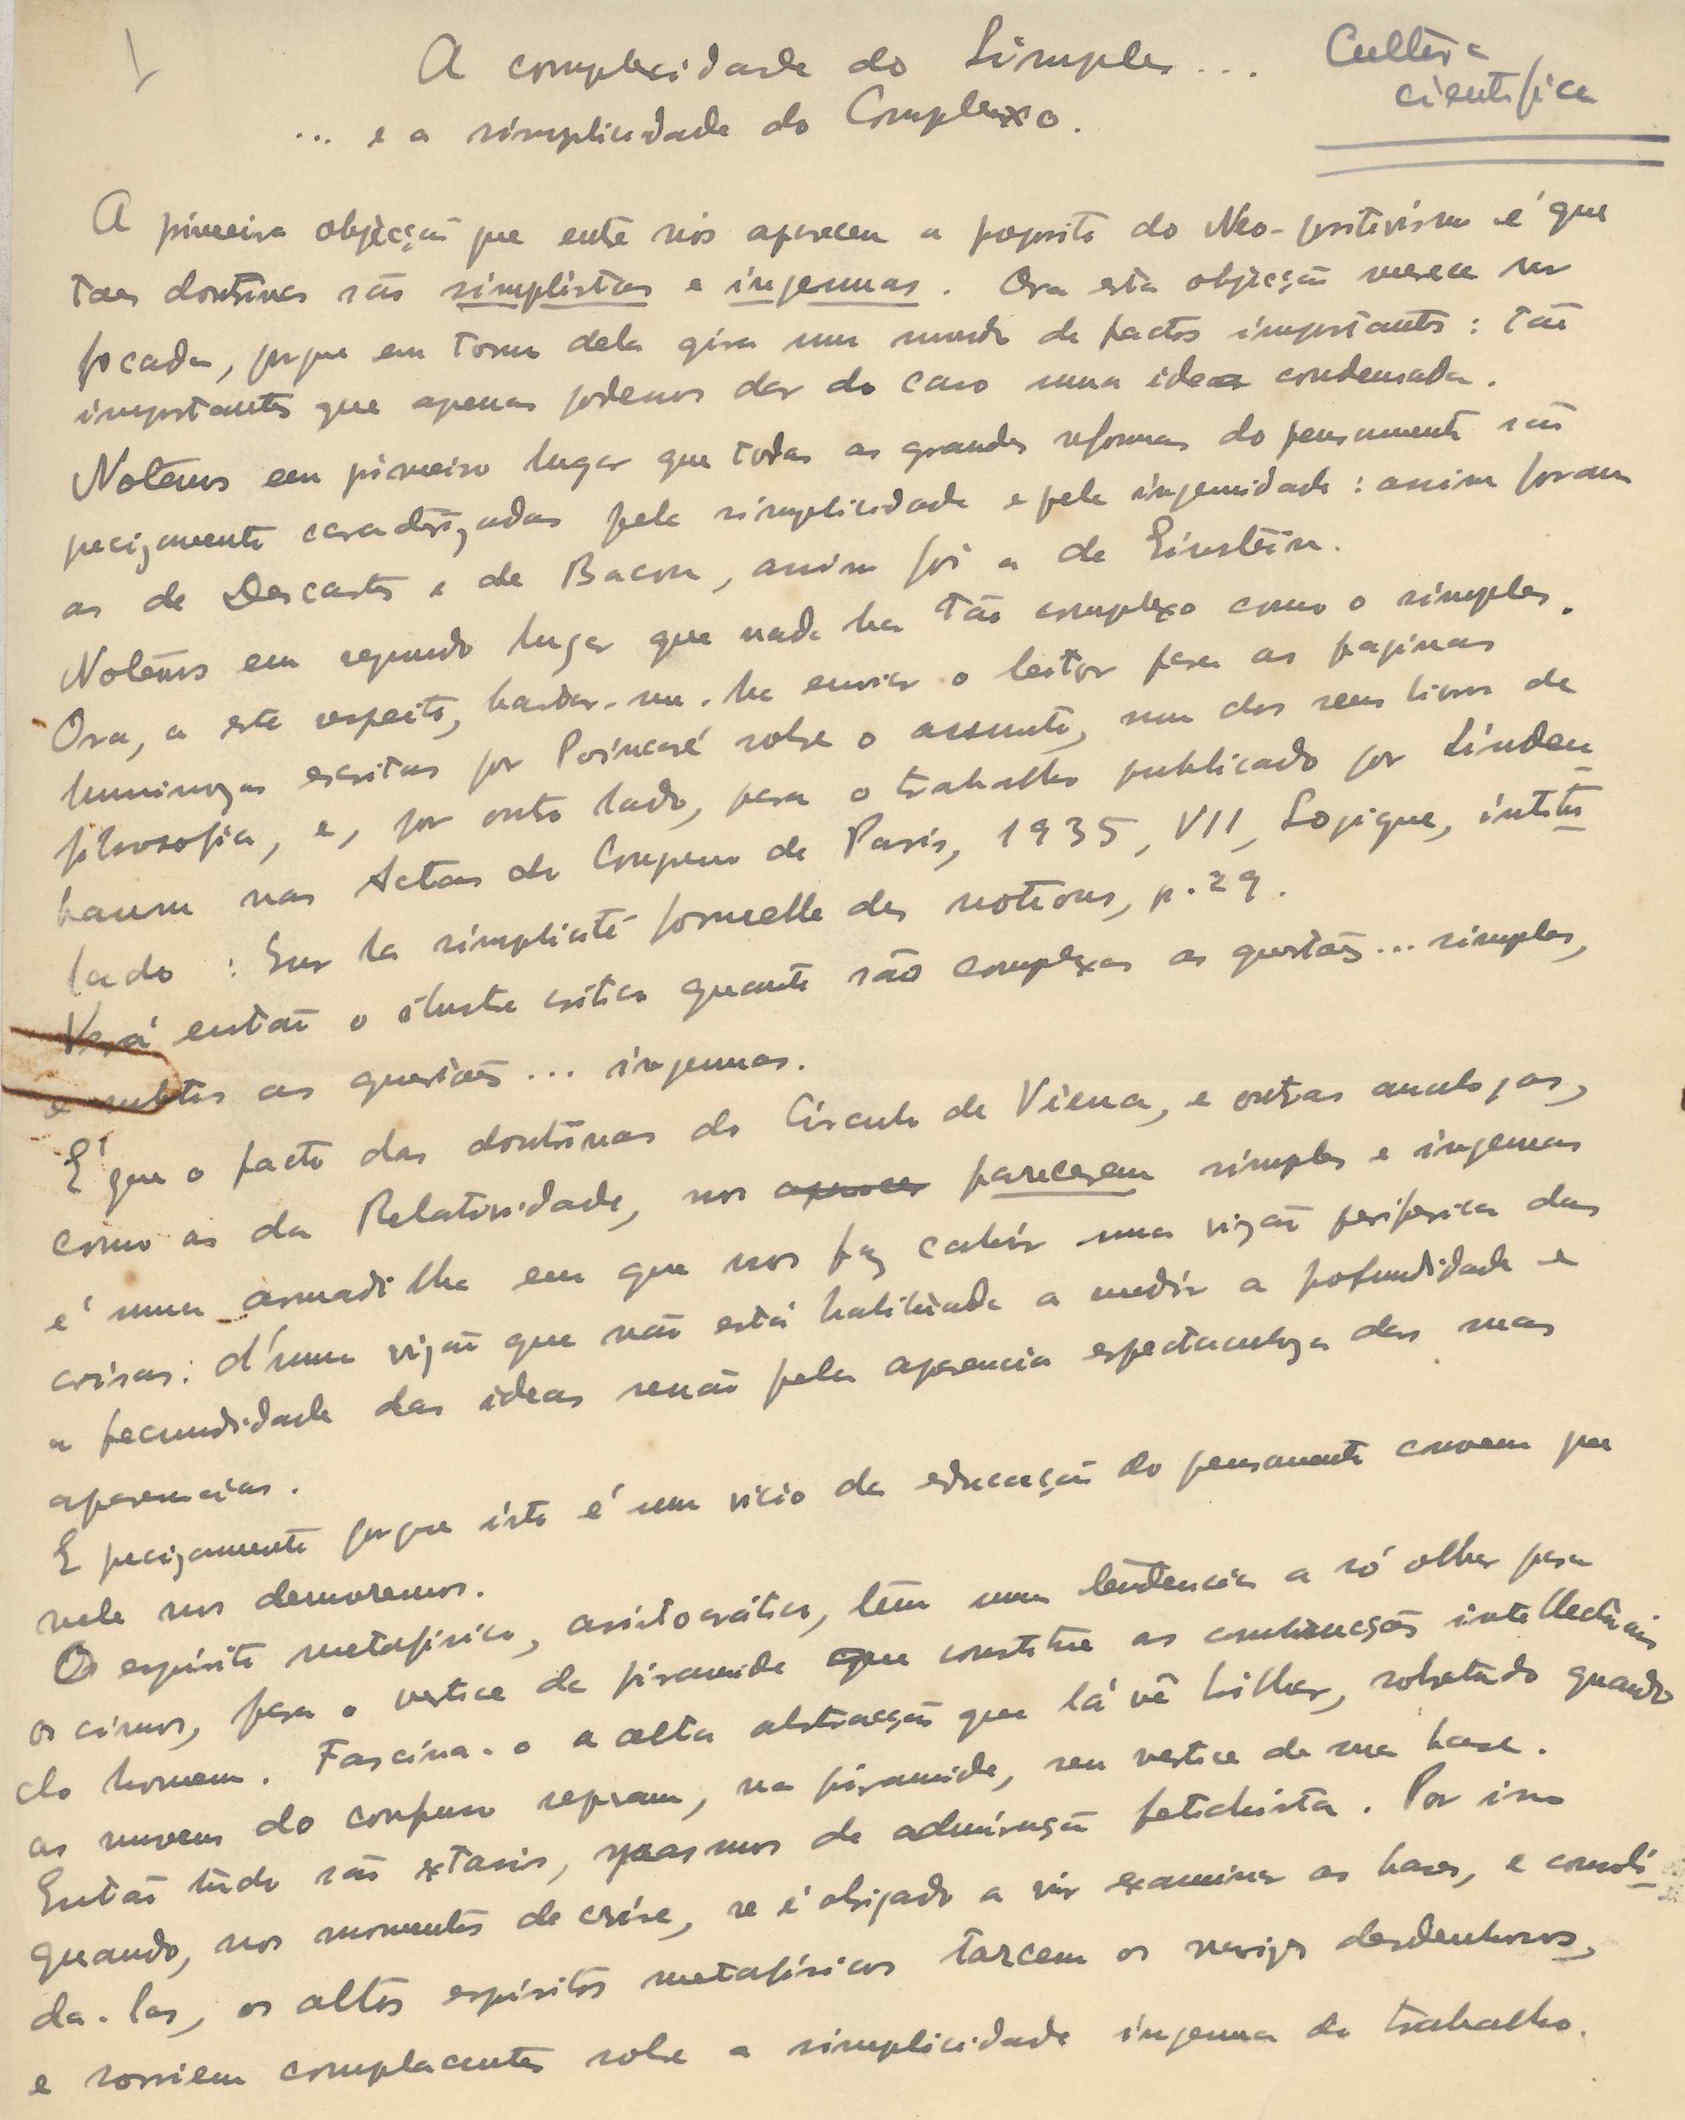 A complexidade do Simples... Cultura
científica
... e a simplicidade do Complexo.
A primeira objecção que entre nós aparecem a proposito do Neo-positivismo é que
taes doutrinas são simplistas e ingenuas. Ora esta objecção merece ser
focada, porque em torno dela gira um mundo de factos importantes: tão
importantes que apenas podemos dar do caso uma idea condensada.
Notemos em primeiro lugar que todas as grandes reformas do pensamento são
precizamente caracterizadas pela simplicidade e pela ingenuidade: assim foram
as de Descartes e de Bacon, assim foi a de Einstein.
Notemos em segundo lugar que nada ha tão complexo como o simples.
Ora, a este respeito, bastar-me-ha enviar o leitor para as paginas
luminozas escritas por Poincaré sobre o assunto, num dos seus livros de
filosofia, e, por outro lado, para o trabalho publicado por Linden
baum nas Actas do Congresso de Paris, 1935, VII, Logique, intitu
lado: Sur la simplicité formelle des notions, p. 29.
Verá então o ilustre critico quanto são complexas as questões... simples,
e subtis as questões... ingenuas.
É que o facto das doutrinas do Circulo de Viena, e outras analogas,
como as da Relatividade, nos parecerem simples e ingenuas
é uma armadilha em que nos faz cahir uma vizão periferica das
coisas: d'uma vizão que não está habituada a medir a profundidade e
a fecundidade das ideas senão pela aparencia espectaculoza das suas
aparencias.
E precizamente porque isto é um vicio da educação do pensamento convem que
nele nos demoremos.
O espirito metafisico, aristocrático, têm uma tendencia a só olhar para
os cimos, para o vertice da piramide que constitue as construcções intellectuais
do homem. Fascina-o a alta abstracção que lá vê brilhar, sobretudo quando
as nuvens do confuso separam, na piramide, seu vertice da sua base.
Então tudo são extasis, spasmos de admiração fetichista. Por isso
quando, nos momentos de crise, se é obrigado a vir examinar as bases, e consoli
da-las, os altos espiritos metafisicos torcem os narizes desdenhosos,
e sorriem complacentes sobre a simplicidade ingenua do trabalho.